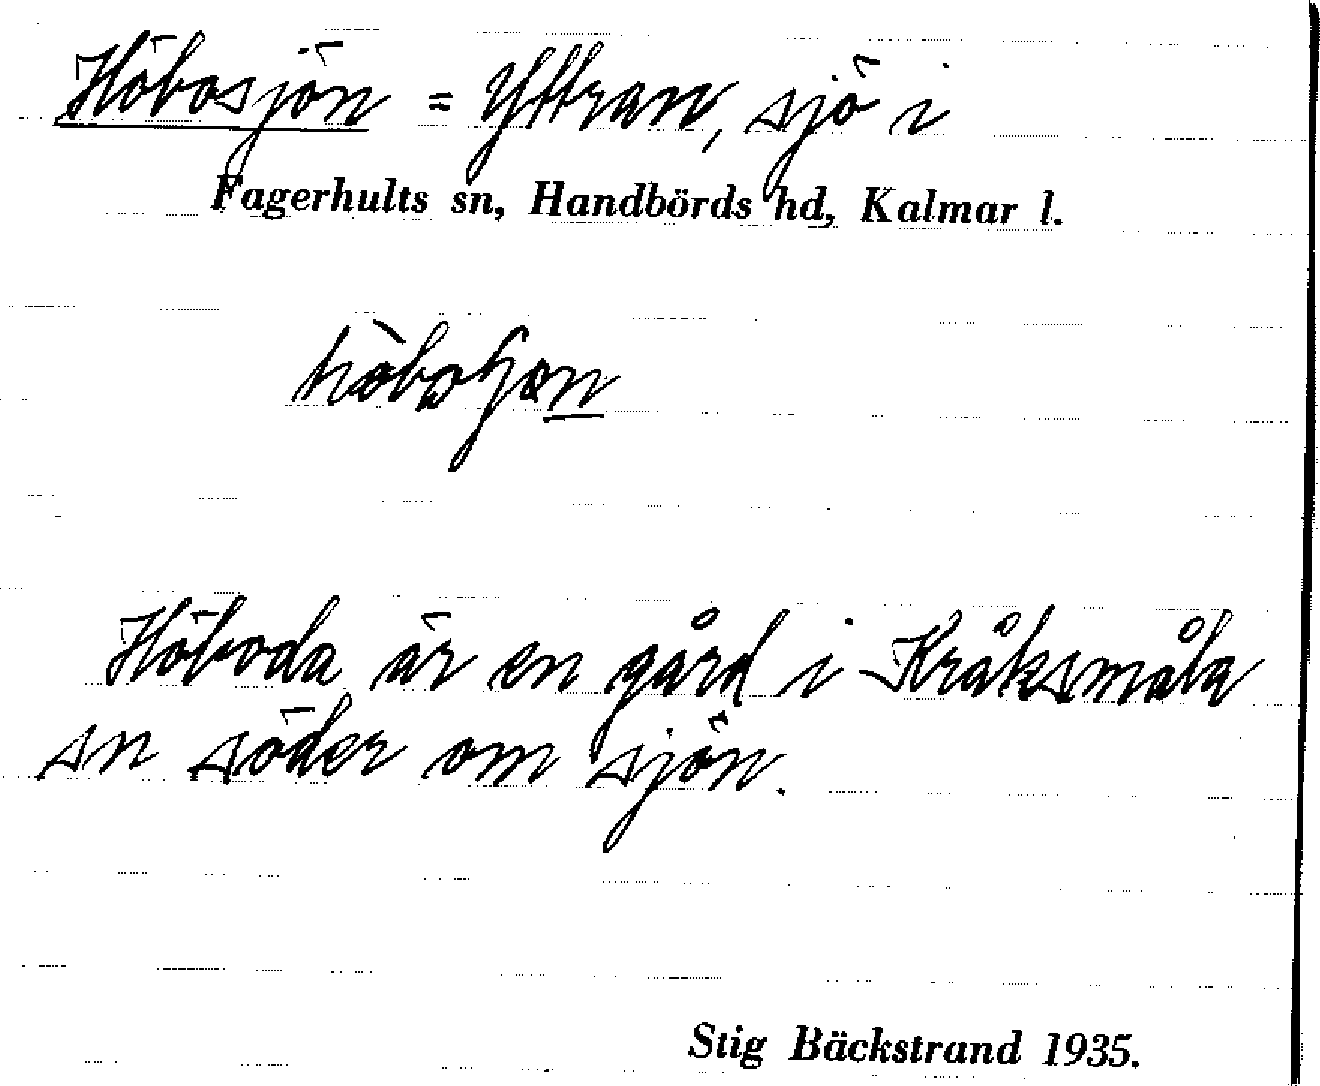 Höbosjön = Yttran, sjö i
Fagerhults sn, Handbörds hd, Kalmar l.
Höboda är en gård i Kråksmåla
sn söder om sjön.
Stig Bäckstrand 1935.